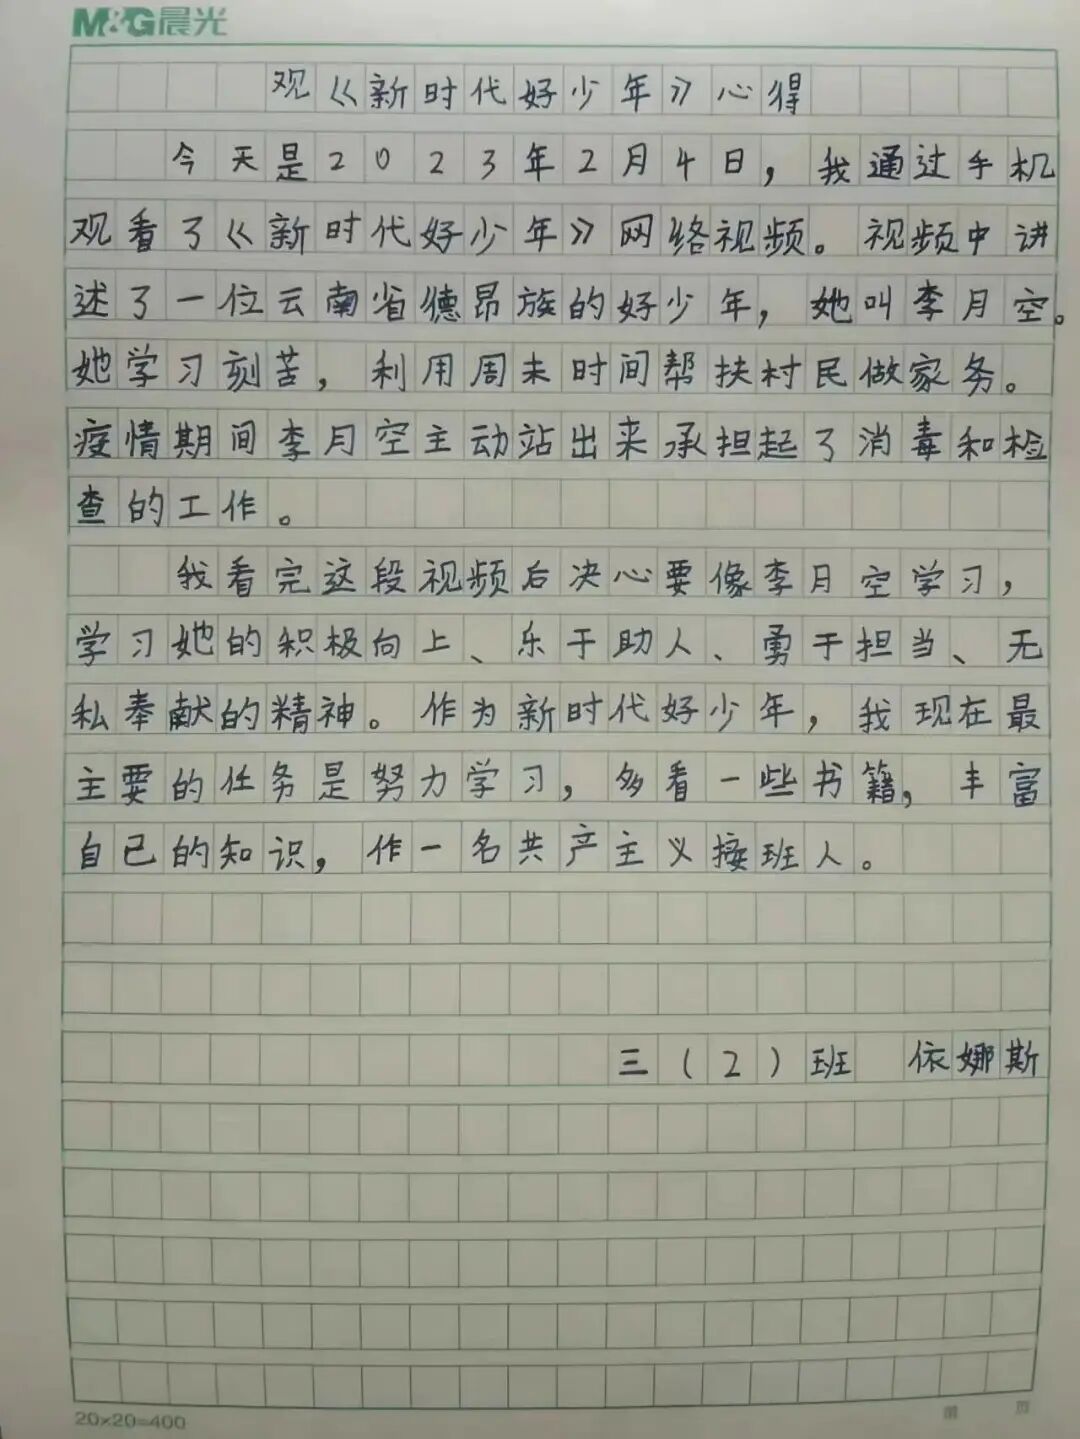 M&G晨光
观《新时代好少年》心得
今天是2023年2月4日，我通过手机
观看了《新时代好少年》网络视频。视频中讲
述了一位云南省德昂族的好少年，她叫李月空。
她学习刻苦，利用周末时间帮扶村民做家务。
疫情期间李月空主动站出来承担起了消毒和检
查的工作。
我看完这段视频后决心要像李月空学习，
学习她的积极向上、乐于助人、勇于担当、无
私奉献的精神。作为新时代好少年，我现在最
主要的任务是努力学习，多看一些书籍，丰富
自己的知识，作一名共产主义接班人。
三（2）班 依娜斯
20×20=400
页